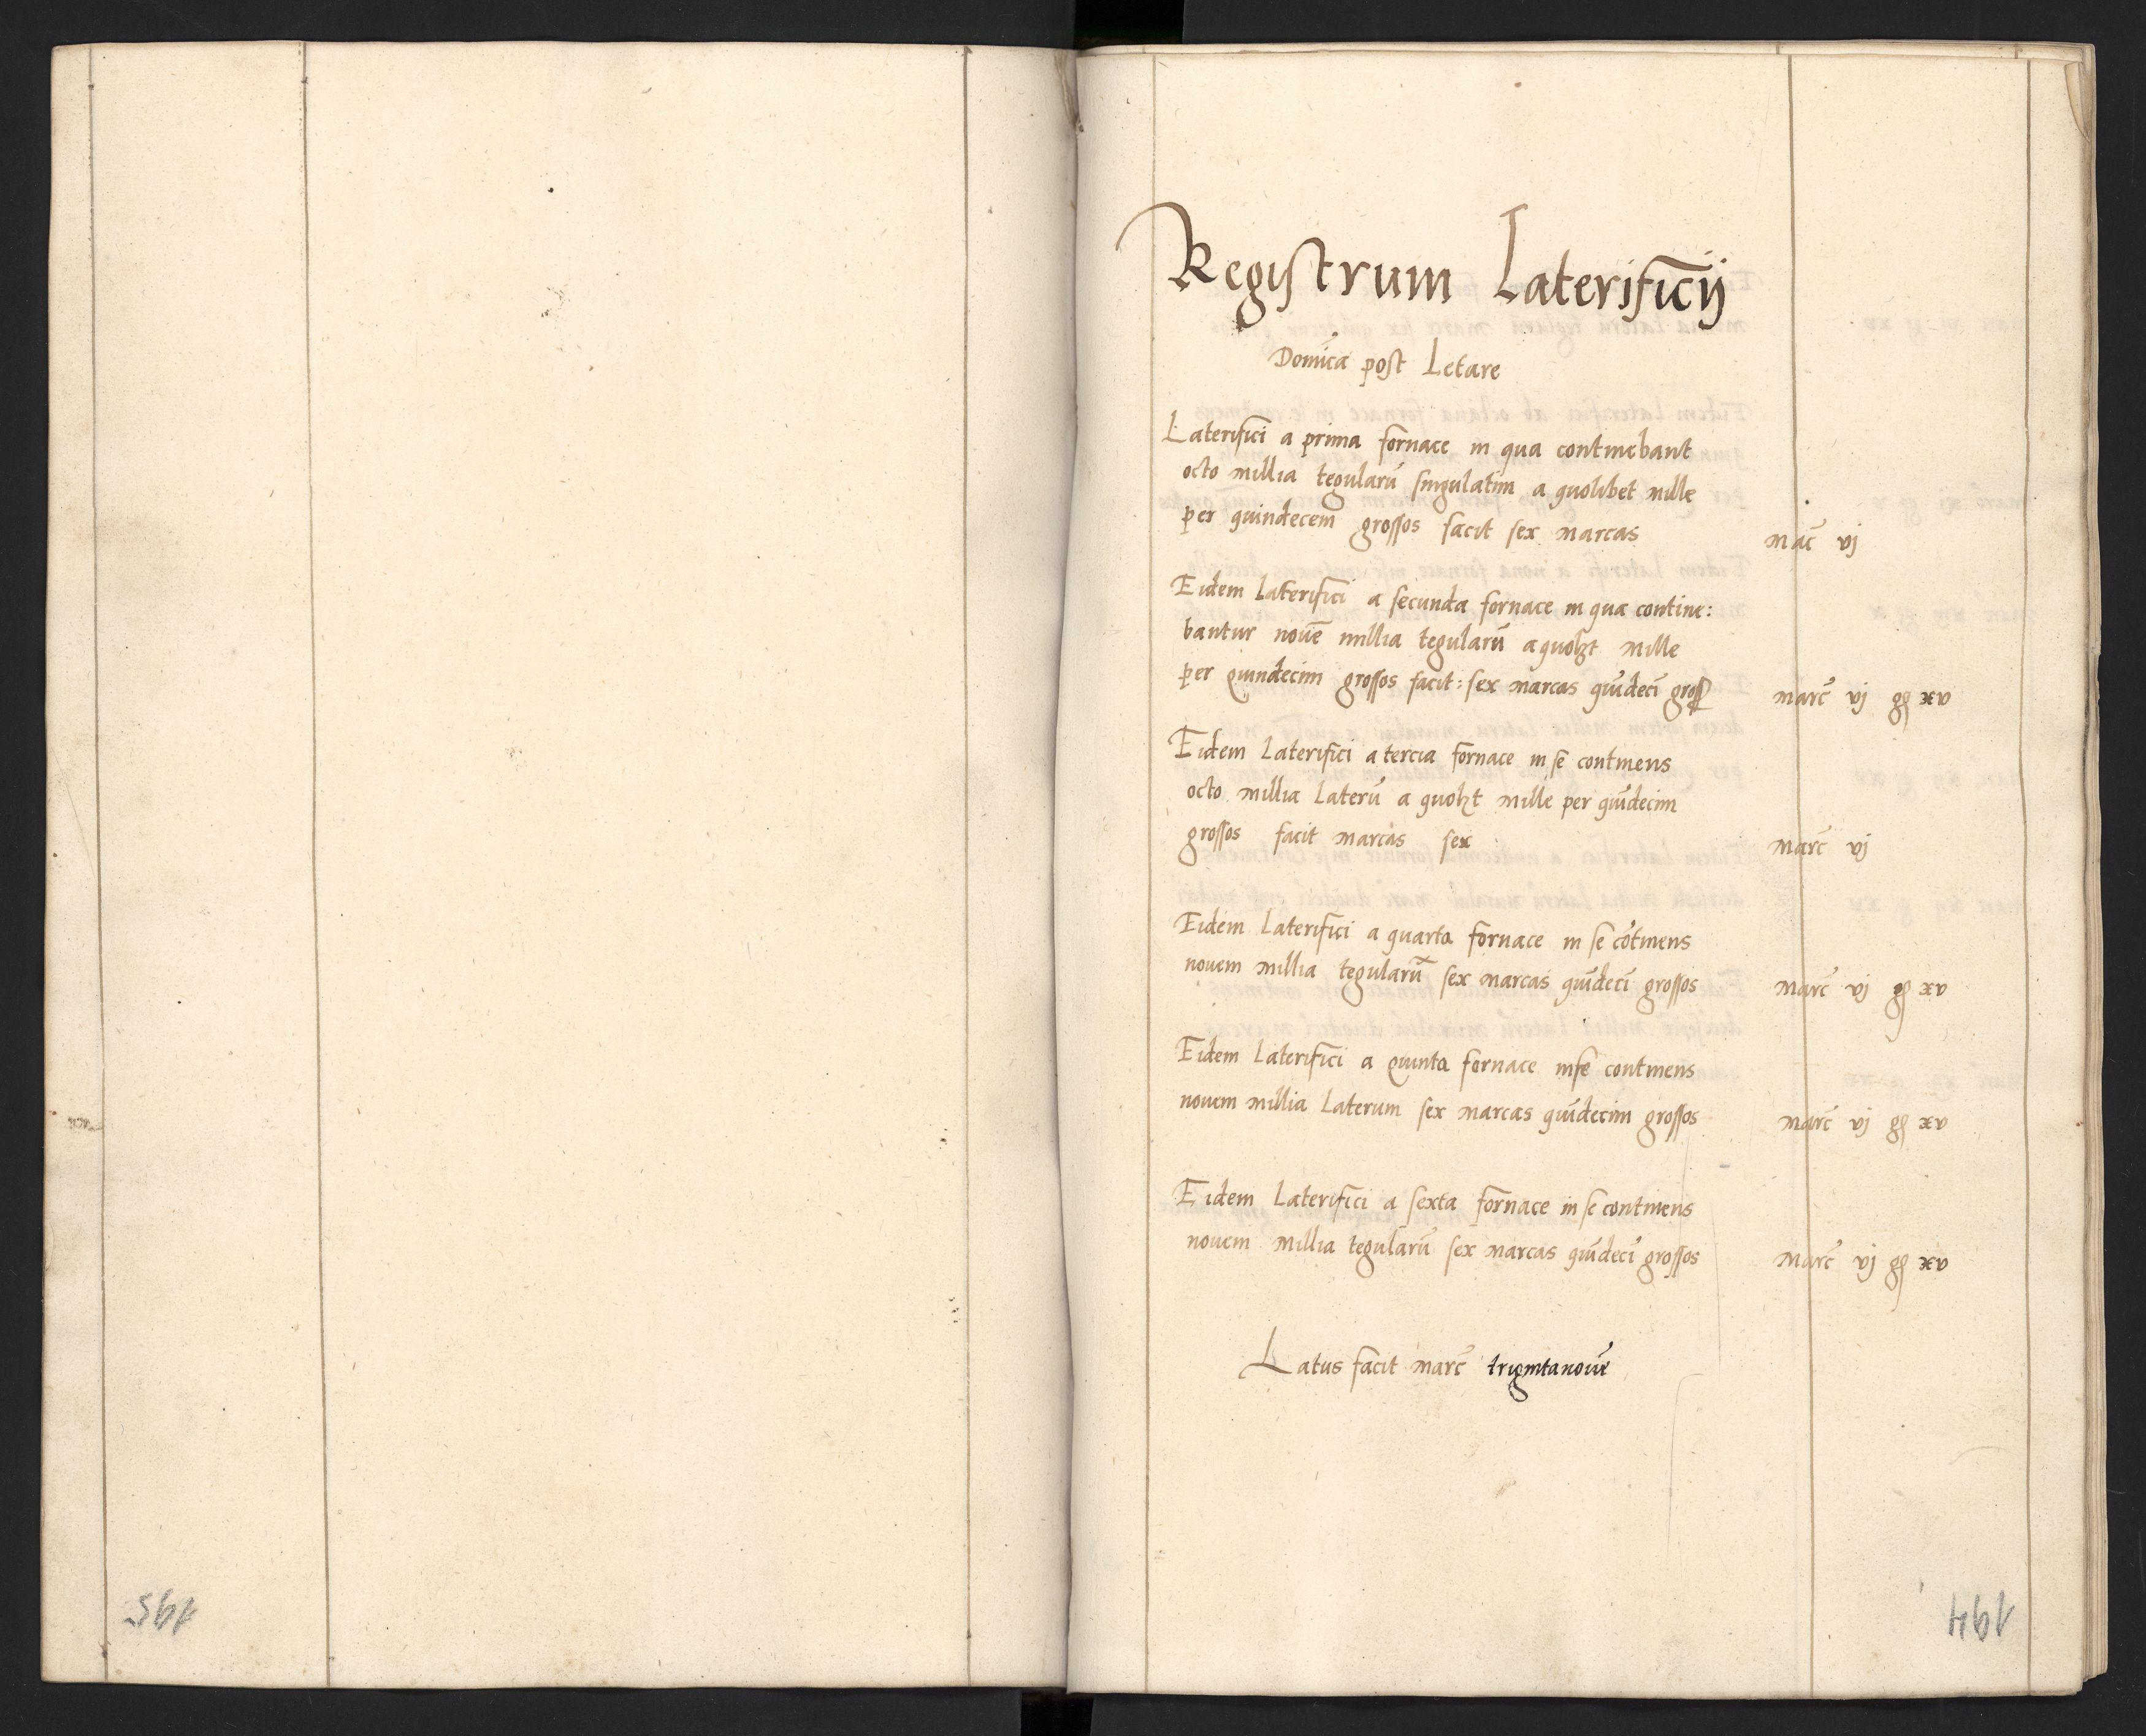 Registrum Laterificij
Domīca post Letare
Laterifici a prima fornace in qua continebant
octo millia tegularū singulatim a quolibet mille
per quindecem grossos facit sex marcas
marc̄ vj
Eidem laterifici a secunda fornace in qua contine:
bantur nouē millia tegularū a quolzt mille
per quindecim grossos facit: sex marcas quīdecī gross
marc̄ vj gg xv
Eidem Laterifici a tercia fornace in se continens
octo millia Laterū a quolzt mille per quīdecim
grossos facit marcas sex
marc̄ vj
Eidem Laterifici a quarta fornace in se cōtinens
nouem millia tegularū sex marcas quīdecī grossos
marc̄ vj gg xv
Eidem Laterifici a quinta fornace in se continens
nouem millia Laterum sex marcas quīdecim grossos
marc̄ vj gg xv
Eidem Laterifici a sexta fornace in se continens
nouem millia tegularū sex marcas quīdecī grossos
marc̄ vj gg xv
Latus facit marc̄ trigintanouē
195
194